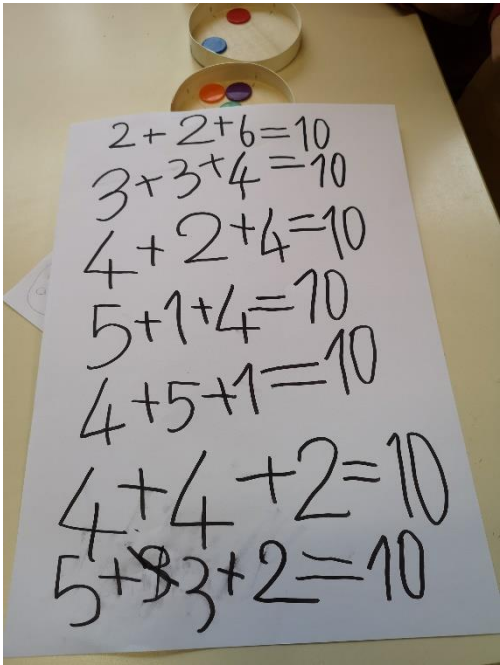 2+2+6=10
3+3+4=10
4+2+4=10
5+1+4=10
4+5+1=10
4+4+2=10
5+3+2=10